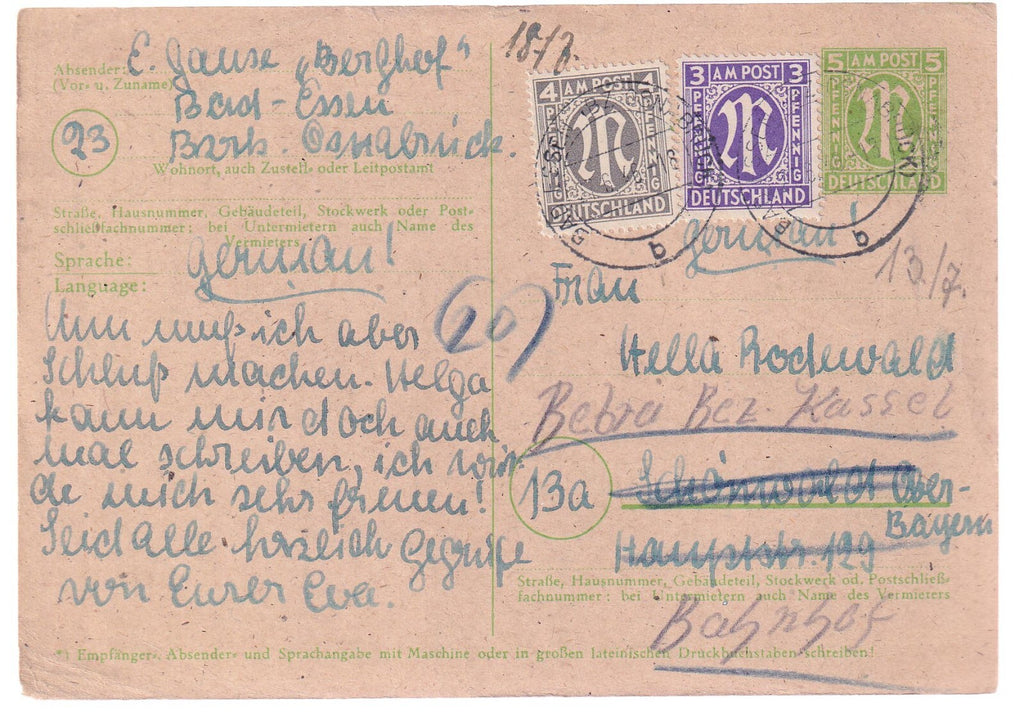 Absender: E. Gause „Berghof“
(Vor- u. Zuname)
Bad-Essen
23
Bzrk. Osnabrück.
Wohnort, auch Zustell- oder Leitpostamt
Straße, Hausnummer, Gebäudeteil, Stockwerk oder Post-
schließfachnummer; bei Untermietern auch Name des
Vermieters
Sprache: german!
Language:
Nun muß ich aber
Schluß machen. Helga
kann mir doch auch
mal schreiben, ich wür-
de mich sehr freuen!
Seid alle herzlich gegrüßt
von Eurer Eva.
*) Empfänger-, Absender- und Sprachangabe mit Maschine oder in großen lateinischen Druckbuchstaben schreiben!
18/7.
4 AM POST 4
PFENNIG
PFENNIG
M
DEUTSCHLAND
3 AM POST 3
PFENNIG
PFENNIG
M
DEUTSCHLAND
5 AM POST 5
PFENNIG
PFENNIG
M
DEUTSCHLAND
b
b
german!
13./7.
20
Frau
Hella Rodewald
Bebra Bez. Kassel
13a
Schönwald Ober-
Bayern
Hauptstr. 129
Straße, Hausnummer, Gebäudeteil, Stockwerk od. Postschließ-
fachnummer; bei Untermietern auch Name des Vermieters
Bahnhof